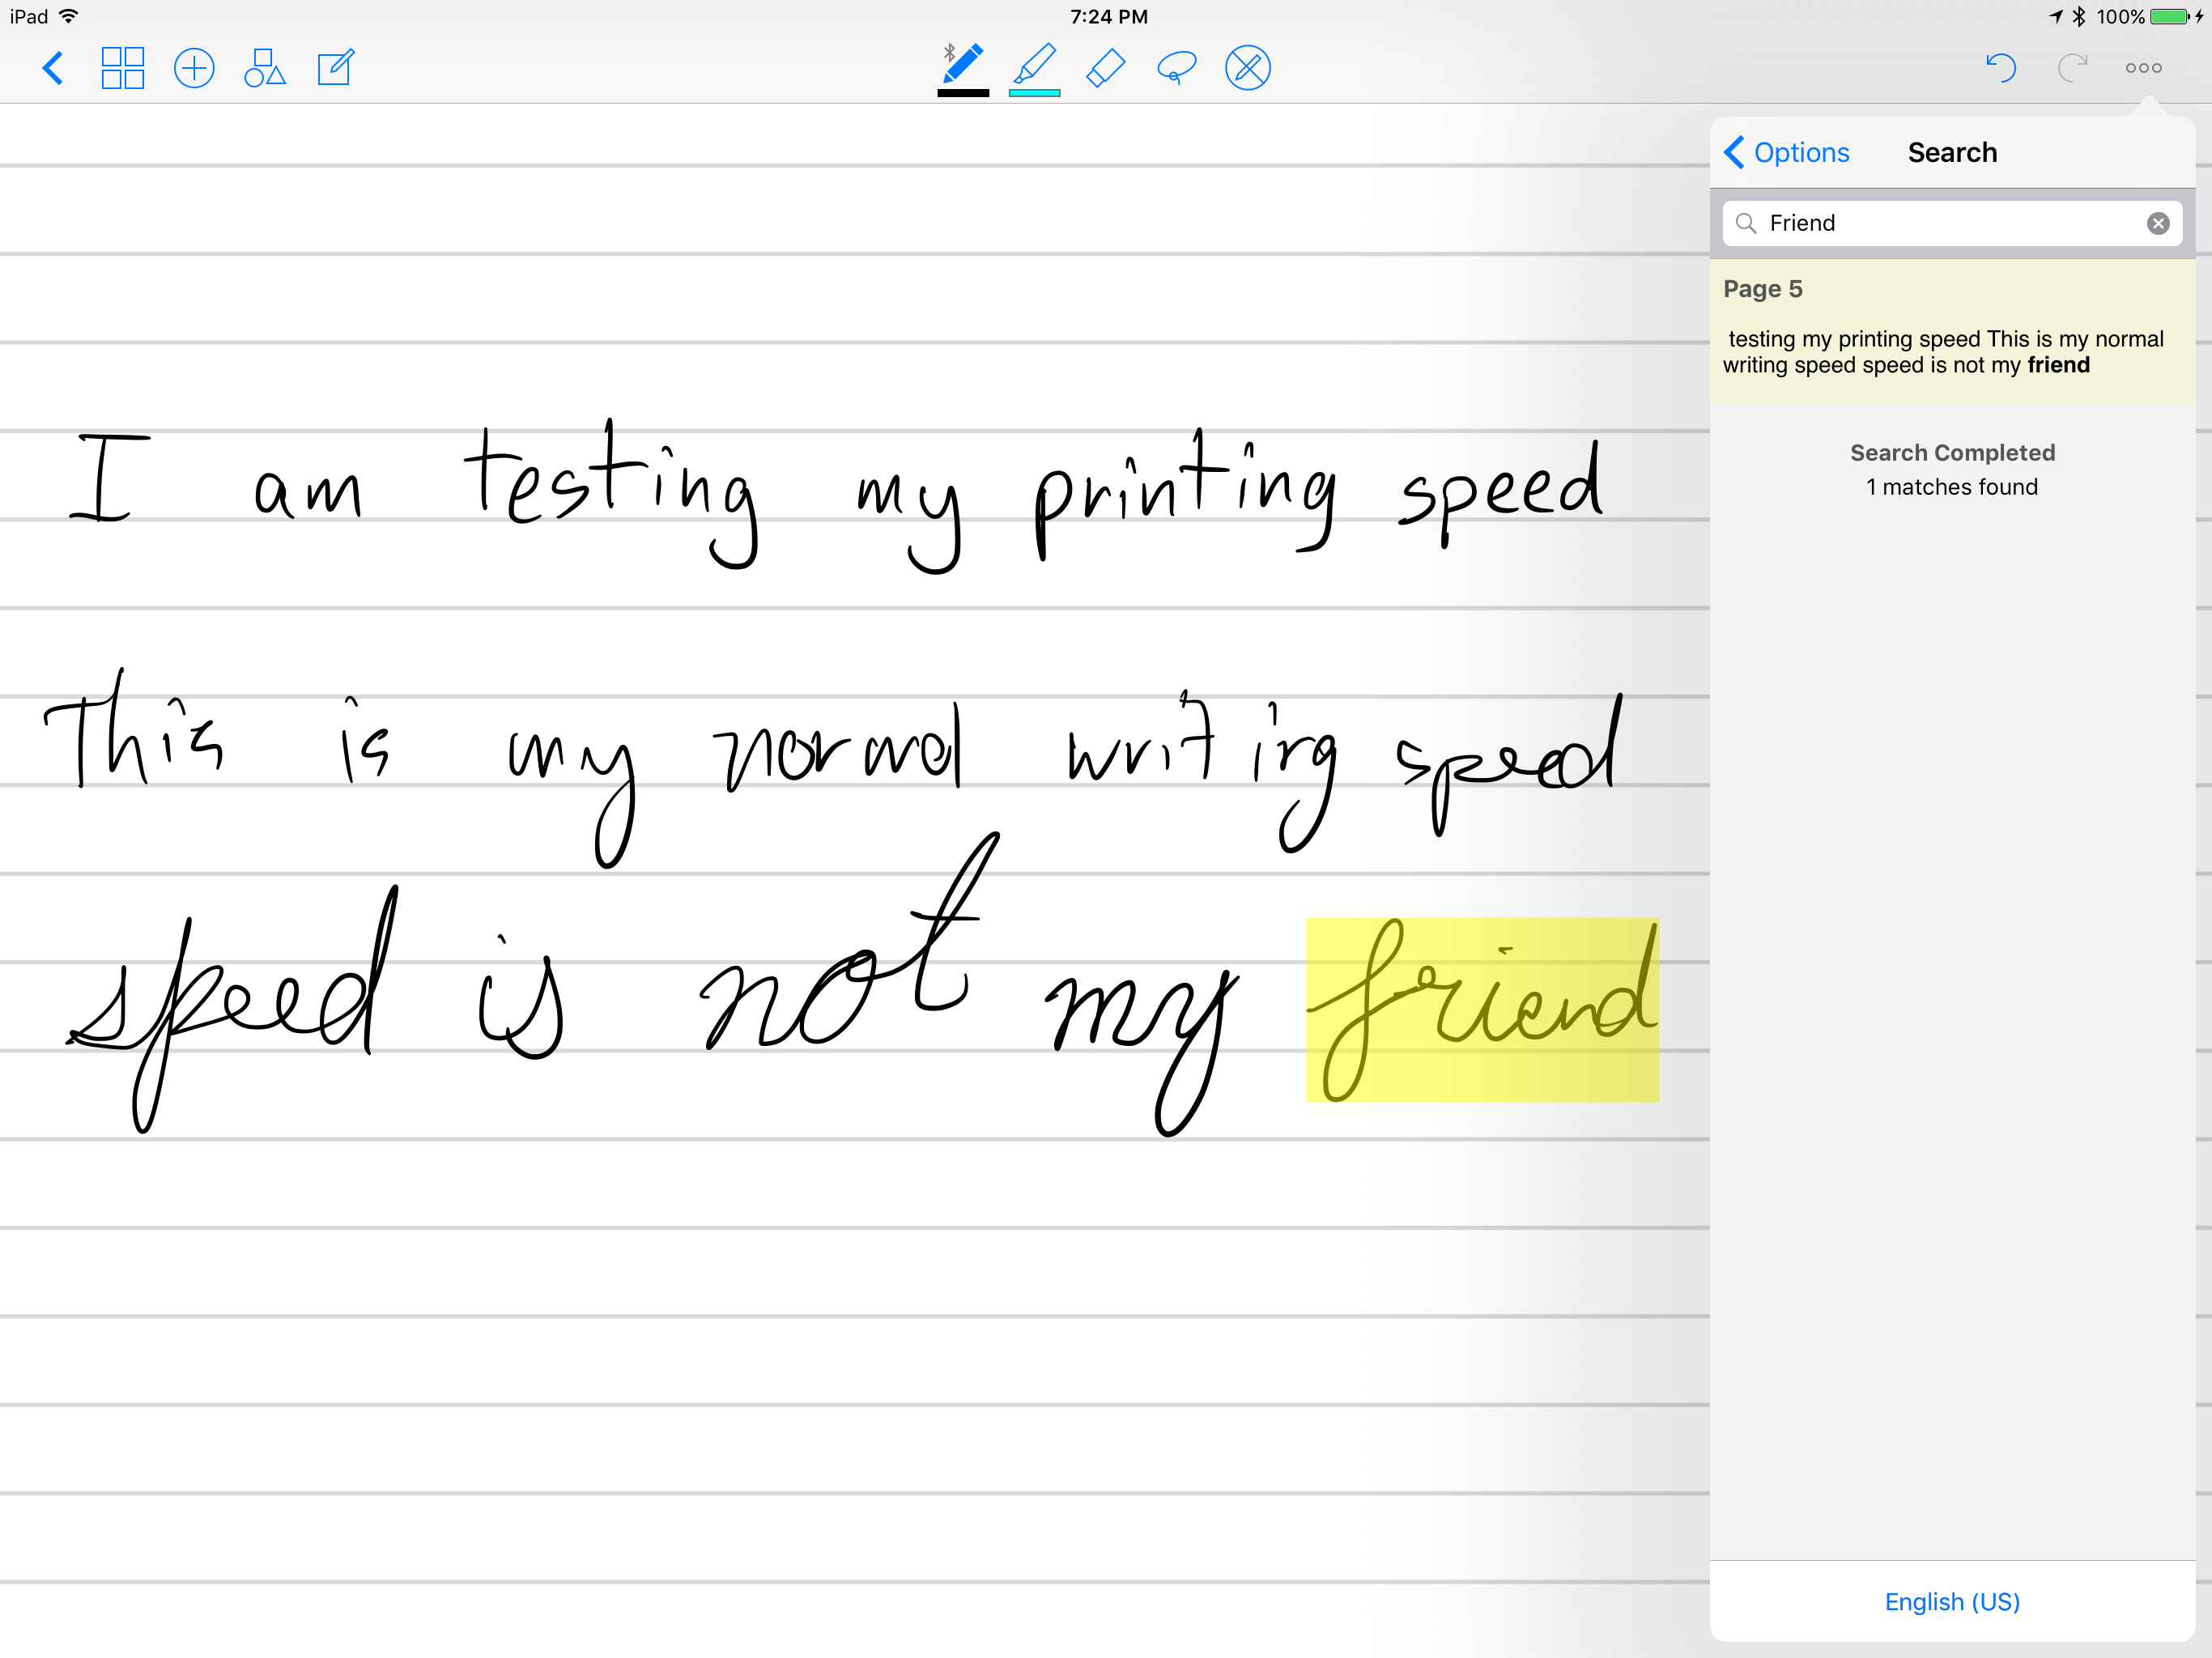 iPad
7:24 PM
100%
Options
Search
Friend
Page 5
testing my printing speed This is my normal
writing speed speed is not my friend
Search Completed
1 matches found
I am testing my printing speed
This is my normal writing speed
speed is not my friend
English (US)